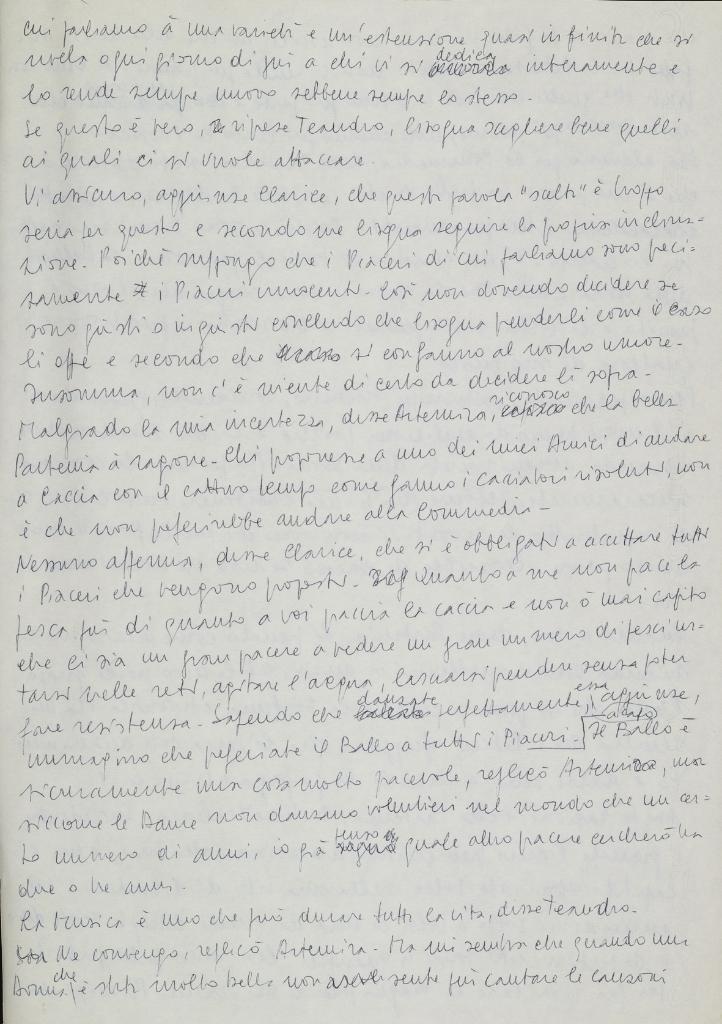 cui parliamo à una varietà e un'estensione quasi infinita che si
rivela ogni giorno di più a chi vi si dedica interamente e
lo rende sempre nuovo sebbene sempre lo stesso.
Se questo è vero, riprese Teandro, bisogna scegliere bene quelli
ai quali ci si vuole attaccare.
Vi assicuro, aggiunse Clarice, che questa parola "scelta" è troppo
seria per questo e secondo me bisogna seguire la propria inclina=
zione. Poiché suppongo che i Piaceri di cui parliamo sono preci=
samente i Piaceri innocenti. Così non dovendo decidere se
sono giusti o ingiusti concludo che bisogna prenderli come il caso
li offre e secondo che si confanno al nostro umore.
Insomma, non c'è niente di certo da decidere lì sopra.
Malgrado la mia incertezza, disse Artemira, riconosco che la bella
Partenia à ragione. Chi proponesse a uno dei miei Amici di andare
a Caccia con il cattivo tempo come fanno i Cacciatori risoluti, non
è che non preferirebbe andare alla Commedia -
Nessuno afferma, disse Clarice, che si è obbligati a accettare tutti
i Piaceri che vengono proposti. Quanto a me non piace la
pesca più di quanto a voi piaccia la caccia e non ò mai capito
che ci sia un gran piacere a vedere un gran numero di pesci ur=
tarsi nelle reti, agitare l'acqua, lasciarsi prendere senza poter
fare resistenza. Sapendo che danzate perfettamente, essa aggiunse,
immagino che preferiate il Ballo a tutti i Piaceri. a capo Il Ballo è
sicuramente una cosa molto piacevole, replicò Artemira, ma
siccome le Dame non danzano volentieri nel mondo che un cer=
to numero di anni, io già penso a quale altro piacere cercherò tra
due o tre anni.
La Musica è uno che può durare tutta la vita, disse Teandro.
Ne convengo, replicò Artemira. Ma mi sembra che quando una
Donna che è stata molto bella non si sente più cantare le canzoni